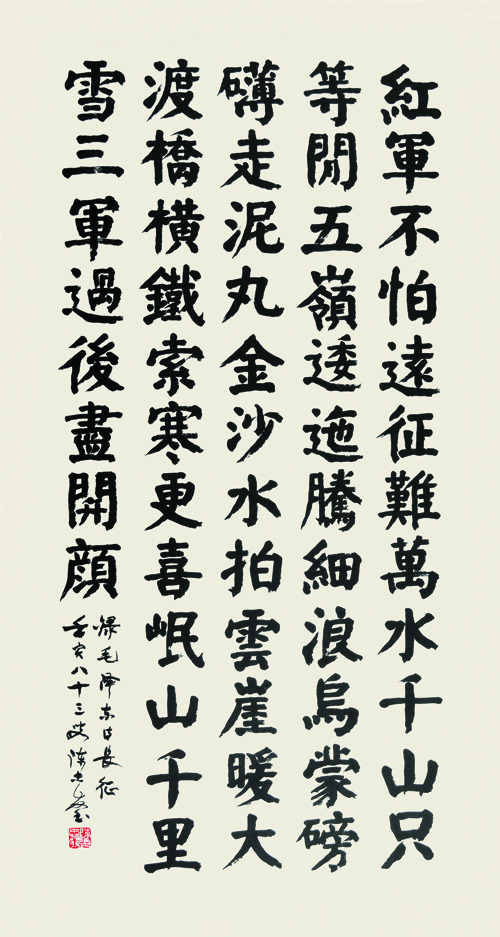 紅軍不怕遠征難萬水千山只
等閒五嶺逶迤騰細浪烏蒙磅
礴走泥丸金沙水拍雲崖暖大
渡橋橫鐵索寒更喜岷山千里
雪三軍過後盡開顏
錄毛澤東詩長征
八十三歲陳